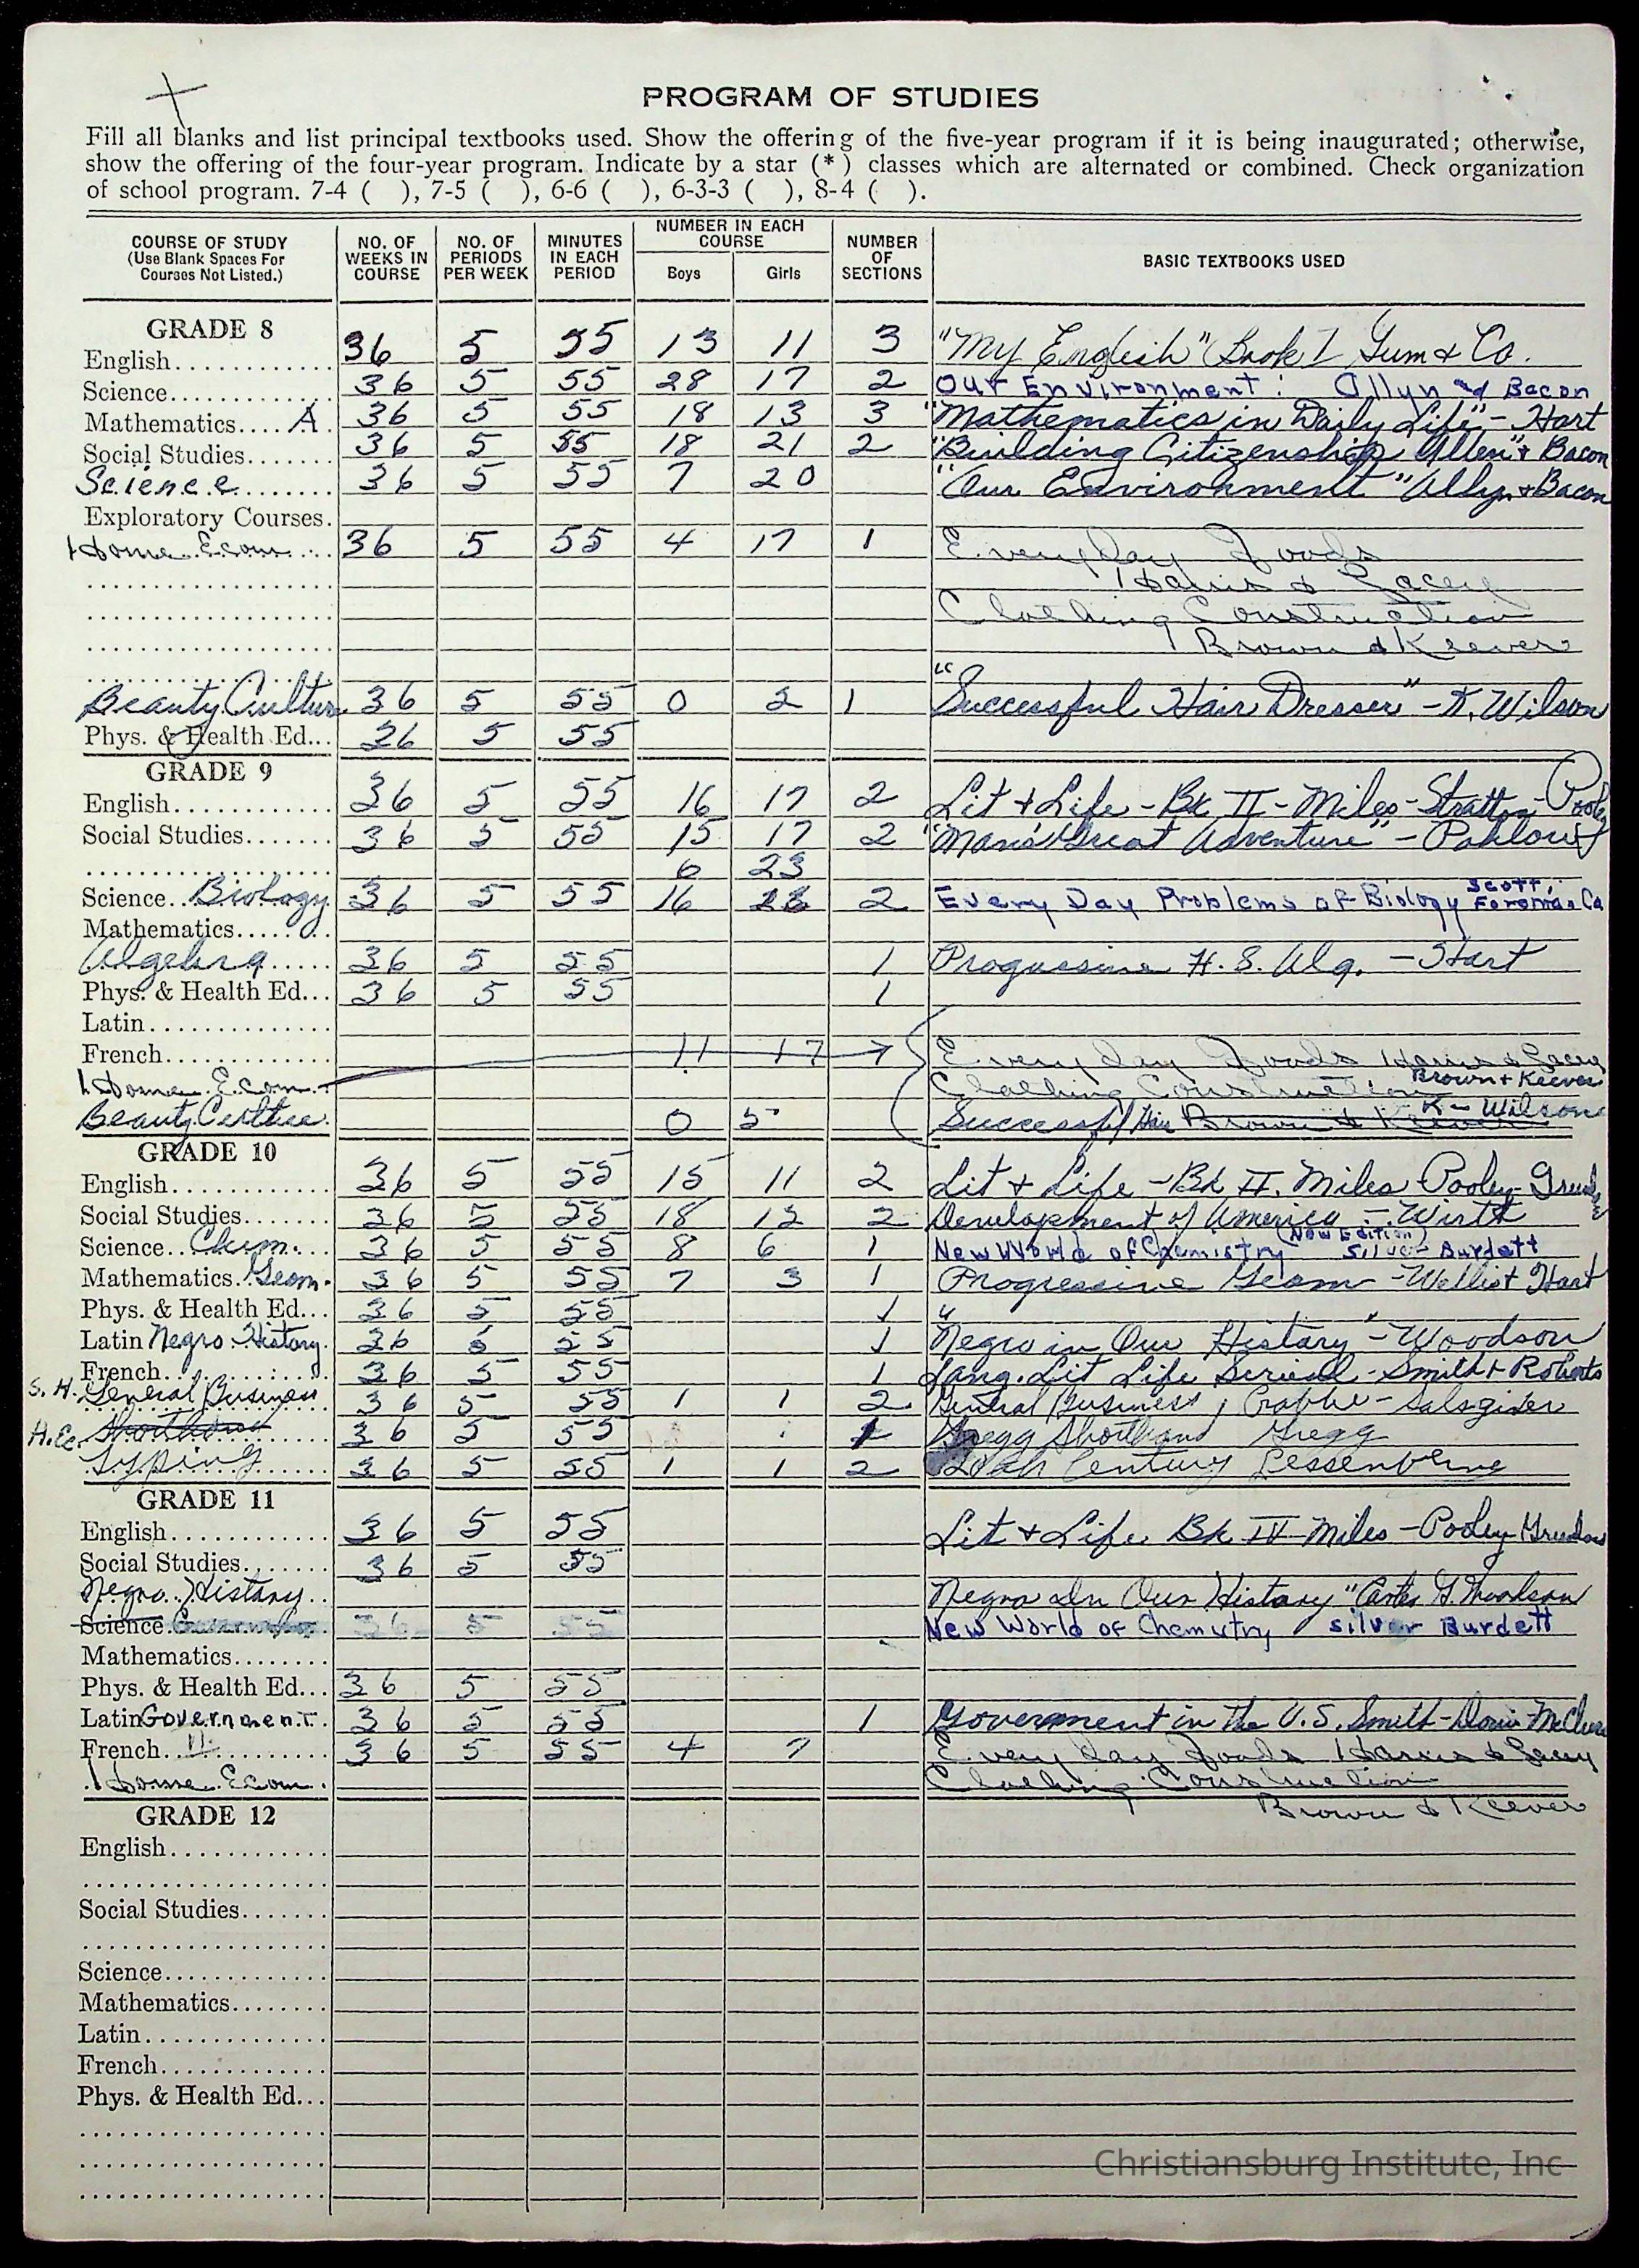 PROGRAM OF STUDIES
Fill all blanks and list principal textbooks used. Show the offering of the five-year program if it is being inaugurated; otherwise,
show the offering of the four-year program. Indicate by a star (*) classes which are alternated or combined. Check organization
of school program. 7-4 ( ), 7-5 ( ), 6-6 ( ), 6-3-3 ( ), 8-4 ( ).
COURSE OF STUDY (Use Blank Spaces For Courses Not Listed.) NO. OF WEEKS IN COURSE NO. OF PERIODS PER WEEK MINUTES IN EACH PERIOD NUMBER IN EACH COURSE Boys Girls NUMBER OF SECTIONS BASIC TEXTBOOKS USED
GRADE 8
English 36 5 55 13 11 3 "My English" Book & Co.
Science 36 5 55 28 17 2 Our Environment: Allyn and Bacon
Mathematics A 36 5 55 18 13 3 "Mathematics in Daily Life" - Hart
Social Studies 36 5 55 18 21 2 "Building Citizenship Allen" & Bacon
Science 36 5 55 7 20 "Our Environment" Allyn & Bacon
Exploratory Courses
Home Econ. 36 5 55 4 17 1 Everyday Foods
Harris & Lacey
Clothing Construction
Brown & Keever
Beauty Culture 36 5 55 0 2 1 "Successful Hair Dresser" - K. Wilson
Phys. & Health Ed. 36 5 55
GRADE 9
English 36 5 55 16 17 2 Lit & Life - Bk II - Miles - Stratton - Pooley
Social Studies 36 5 55 15 17 2 "Man's Great Adventure" - Pahlow
6 23
Science Biology 36 5 55 16 2 Every Day Problems of Biology Scott, Foresman Co
Mathematics
Algebra 36 5 55 1 Progressive H. S. Alg. - Hart
Phys. & Health Ed. 36 5 55 1
Latin
French 11 17 Every day Foods Harris & Lacey
Home Econ. Clothing Construction Brown & Keever
Beauty Culture 0 5 Successful Hair Brown & Keever K - Wilson
GRADE 10
English 36 5 55 15 11 2 Lit & Life - Bk II. Miles Pooley-
Social Studies 36 5 55 18 12 2 Development of America - Wirth
Science Chem. 36 5 55 8 6 1 New World of Chemistry (New Edition) Silver Burdett
Mathematics Geom. 36 5 55 7 3 1 Progressive Geom - & Hart
Phys. & Health Ed. 36 5 55 1
Latin Negro History 36 5 55 1 "Negro in Our History" - Woodson
French 36 5 55 1 Lang. Lit Life - Smith & Roberts
S. H. General Business 36 5 55 1 1 2 General Business, Crabbe - Salsgiver
H. Ec. Shorthand 36 5 55 Gregg Shorthand Gregg
Typing 36 5 55 1 1 2 20th Century Lessenberry
GRADE 11
English 36 5 55 Lit & Life Bk IV Miles - Pooley
Social Studies 36 5 55
Negro History Negro In Our History "Carter G. Woodson
Science 36 5 55 New World of Chemistry Silver Burdett
Mathematics
Phys. & Health Ed. 36 5 55
Latin Government 36 5 55 1 Government in the U. S. Smith-Davis McClure
French II 36 5 55 4 7 Every day Foods Harris & Lacey
Home Econ. Clothing Construction
Brown & Keever
GRADE 12
English
Social Studies
Science
Mathematics
Latin
French
Phys. & Health Ed.
Christiansburg Institute, Inc